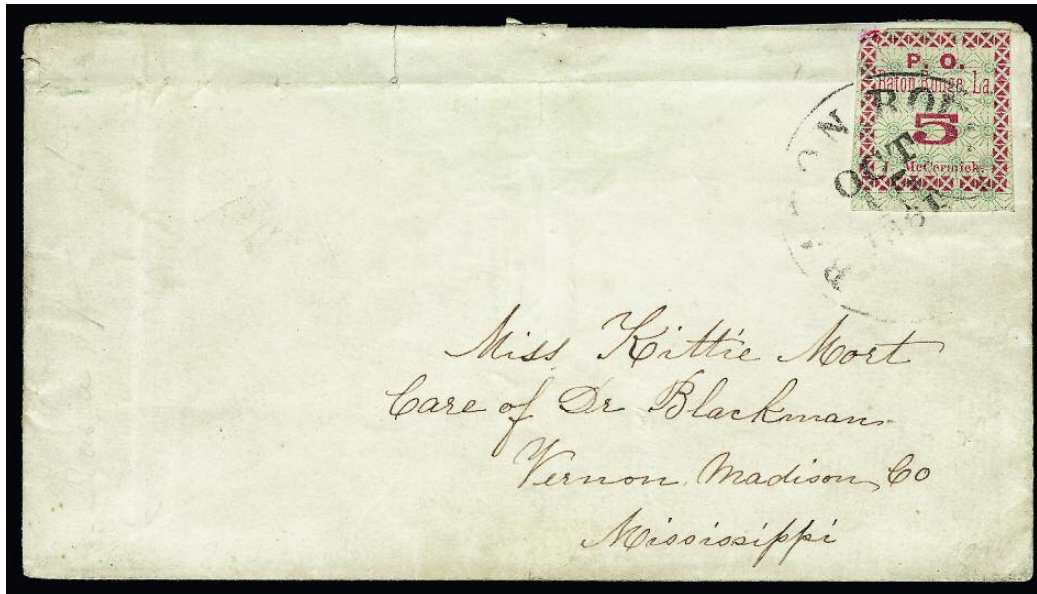 P. O.
Baton Rouge, La.
5
McCcrmick.
ON ROU
OCT
Miss Kittie Mort
Care of Dr Blackman
Vernon Madison Co
Mississippi